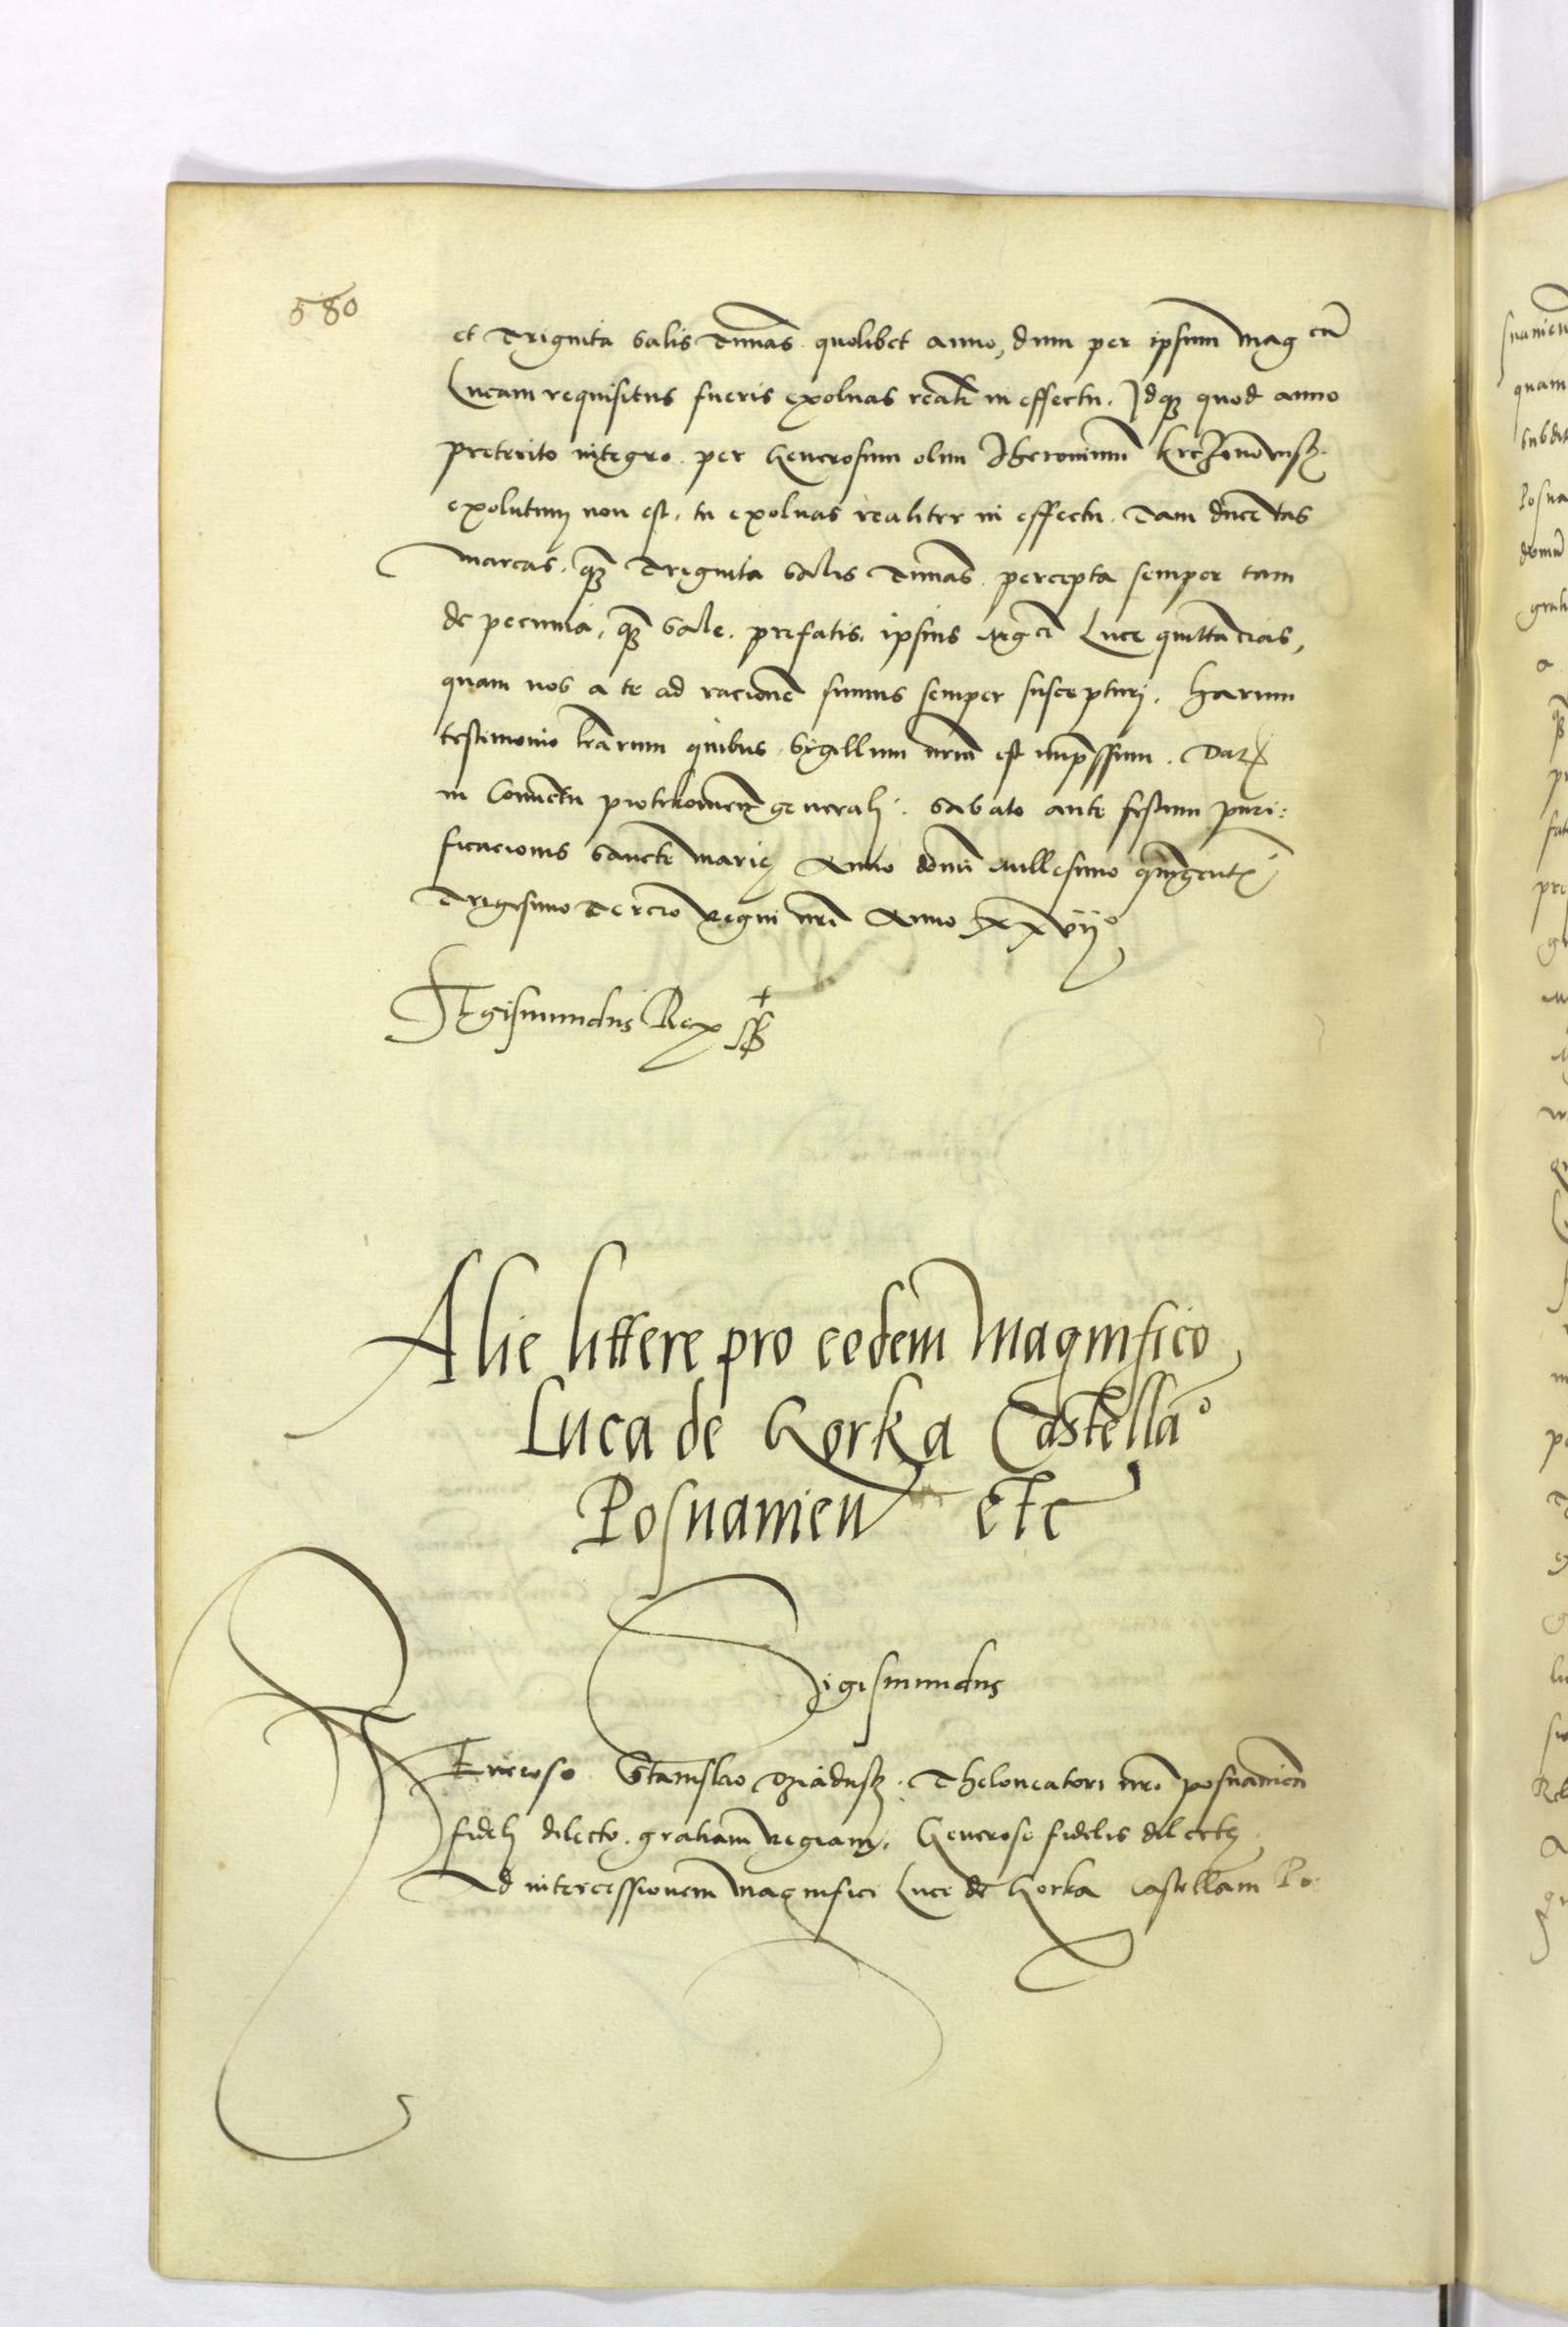 580
et Triginta Salis Tunnas quolibet anno, dum per ipsum Mag cũ
Lucam requisitus fueris exolvas realr̃ in effectu. Idqȝ quod anno
preterito integro per Generosum olim Iheronimum Krczonowsky
exolutum non est, tu exolvas realiter in effectu. Tam ducentas
marcas, qȝ Triginta Salis Tunnas percepta semper tam
de pecunia, qȝ Sale prefatis, ipsius Mgci Luce quittancias,
quam nos a te ad racionẽ sumus semper suscepturi. Harum
testimonio lrarum quibus Sigillum nrm̃ est impressum. Datȝ
in Conventu piotrkovien generali. Sabato ante festum puri:
ficacionis Sancte Marie Anno domi Millesimo quingentẽ
Trigesimo Tercio Regni nrĩ Anno xxvijº
Sigismundus Rex ss
Alie littere pro eodem Magnifico
Luca de Gorka Castellaº
Posnanien etc
Sigismundus
Generoso Stanislao Dziadusky Theloneatori nrõ posnanien
fideli dilecto. gratiam Regiam. Generose fidelis dilecte
Ad intercessionem magnifici Luce de Gorka Castellani Po: